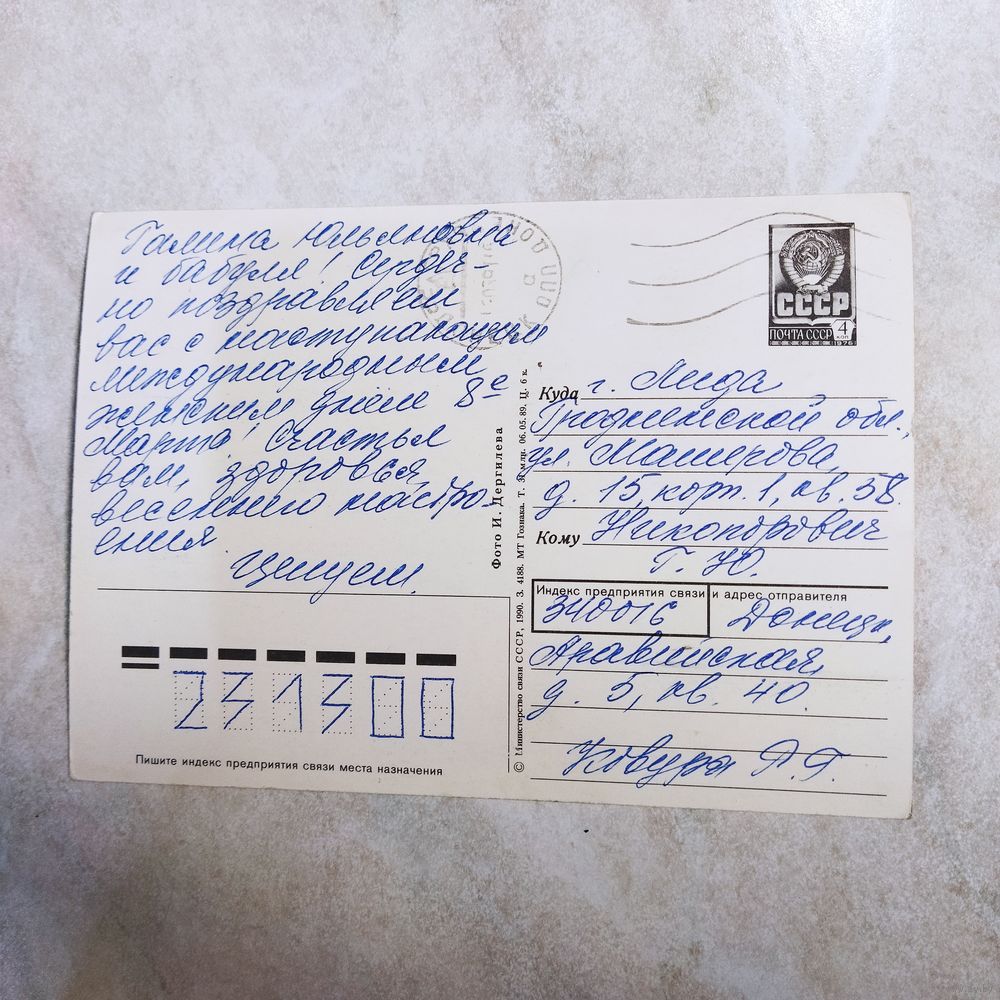 Галина Юльяновна
и бабуля! Сердеч-
но поздравляем
вас с наступающим
международным
женским днём 8е
Марта! Счастья
вам, здоровья,
весеннего настро-
ения.
Целуем.
СССР
ПОЧТА СССР 4 коп
1976
Куда г. Лида
Гродненской обл.,
ул. Машерова,
д. 15, корп. 1, кв. 38.
Кому Никопорович
Г. Ю.
Индекс предприятия связи и адрес отправителя
340016 Донецк,
Аравийская,
д. 5, кв. 40.
А. Г.
Фото И. Дергилева
© Министерство связи СССР, 1990. З. 4188. МТ Гознака. 06.05.89. Ц. 6 к.
231300
Пишите индекс предприятия связи места назначения